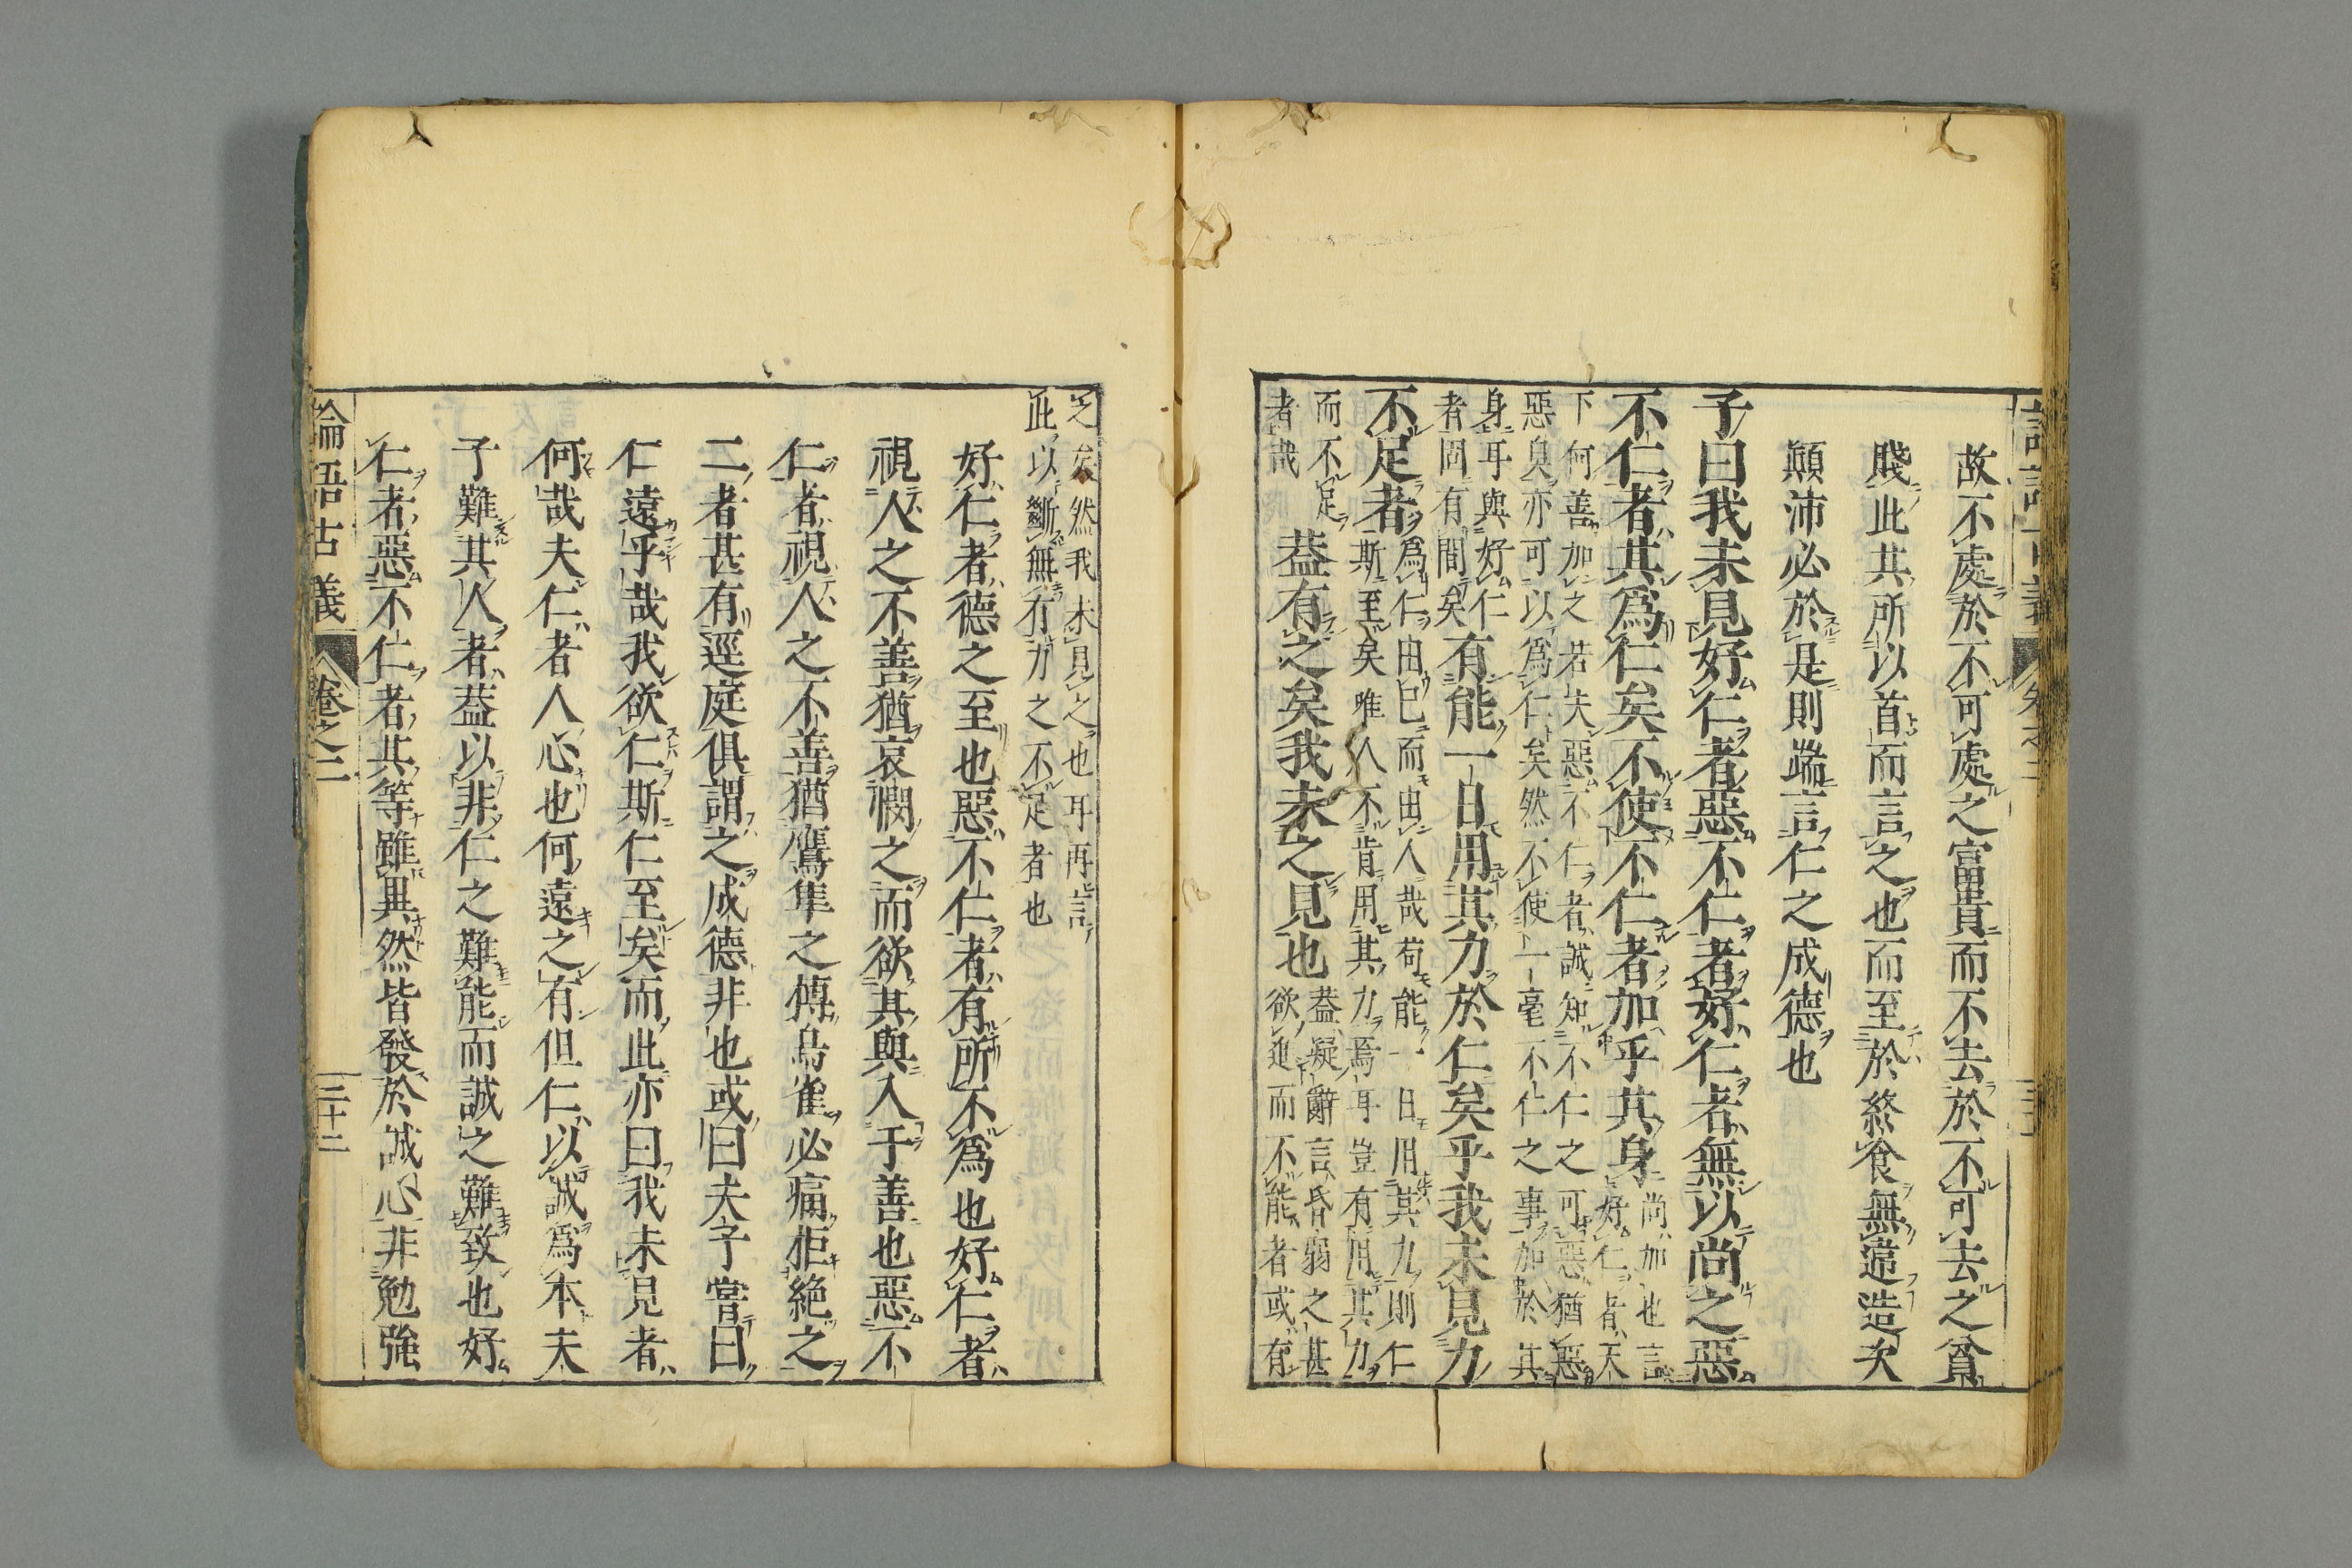 故不處於不可處之富貴而不去於不可去之貧
賤此其所以首而言之也而至於終食無違造次
顛沛必於是則端言仁之成德也
子曰我未見好仁者惡不仁者好仁者無以尚之惡
不仁者其爲仁矣不使不仁者加乎其身
尚加也言
好仁者天
下何善加之若夫惡不仁者誠知不仁之可惡猶惡
惡臭亦可以爲仁矣然不使一毫不仁之事加於其
身耳與好仁
者固有間矣
有能一日用其力於仁矣乎我未見力
不足者
爲仁由己而由人哉苟能一日用其力則仁
斯至矣唯人不肯用其力焉耳豈有用其力
而不足
者哉
蓋有之矣我未之見也
蓋疑辭言昏弱之甚
欲進而不能者或有
之矣然我未見之也耳再言
此以斷無有力之不足者也
好仁者德之至也惡不仁者有所不爲也好仁者
視人之不善猶哀憫之而欲其與入于善也惡不
仁者視人之不善猶鷹隼之搏烏雀必痛拒絶之
二者甚有逕庭俱謂之成德非也或曰夫子嘗曰
仁遠乎哉我欲仁斯仁至矣而此亦曰我未見者
何哉夫仁者人心也何遠之有但仁以誠爲本夫
子難其人者蓋以非仁之難能而誠之難致也好
仁者惡不仁者其等雖異然皆發於誠心非勉強
論語古義
卷之二
三十二